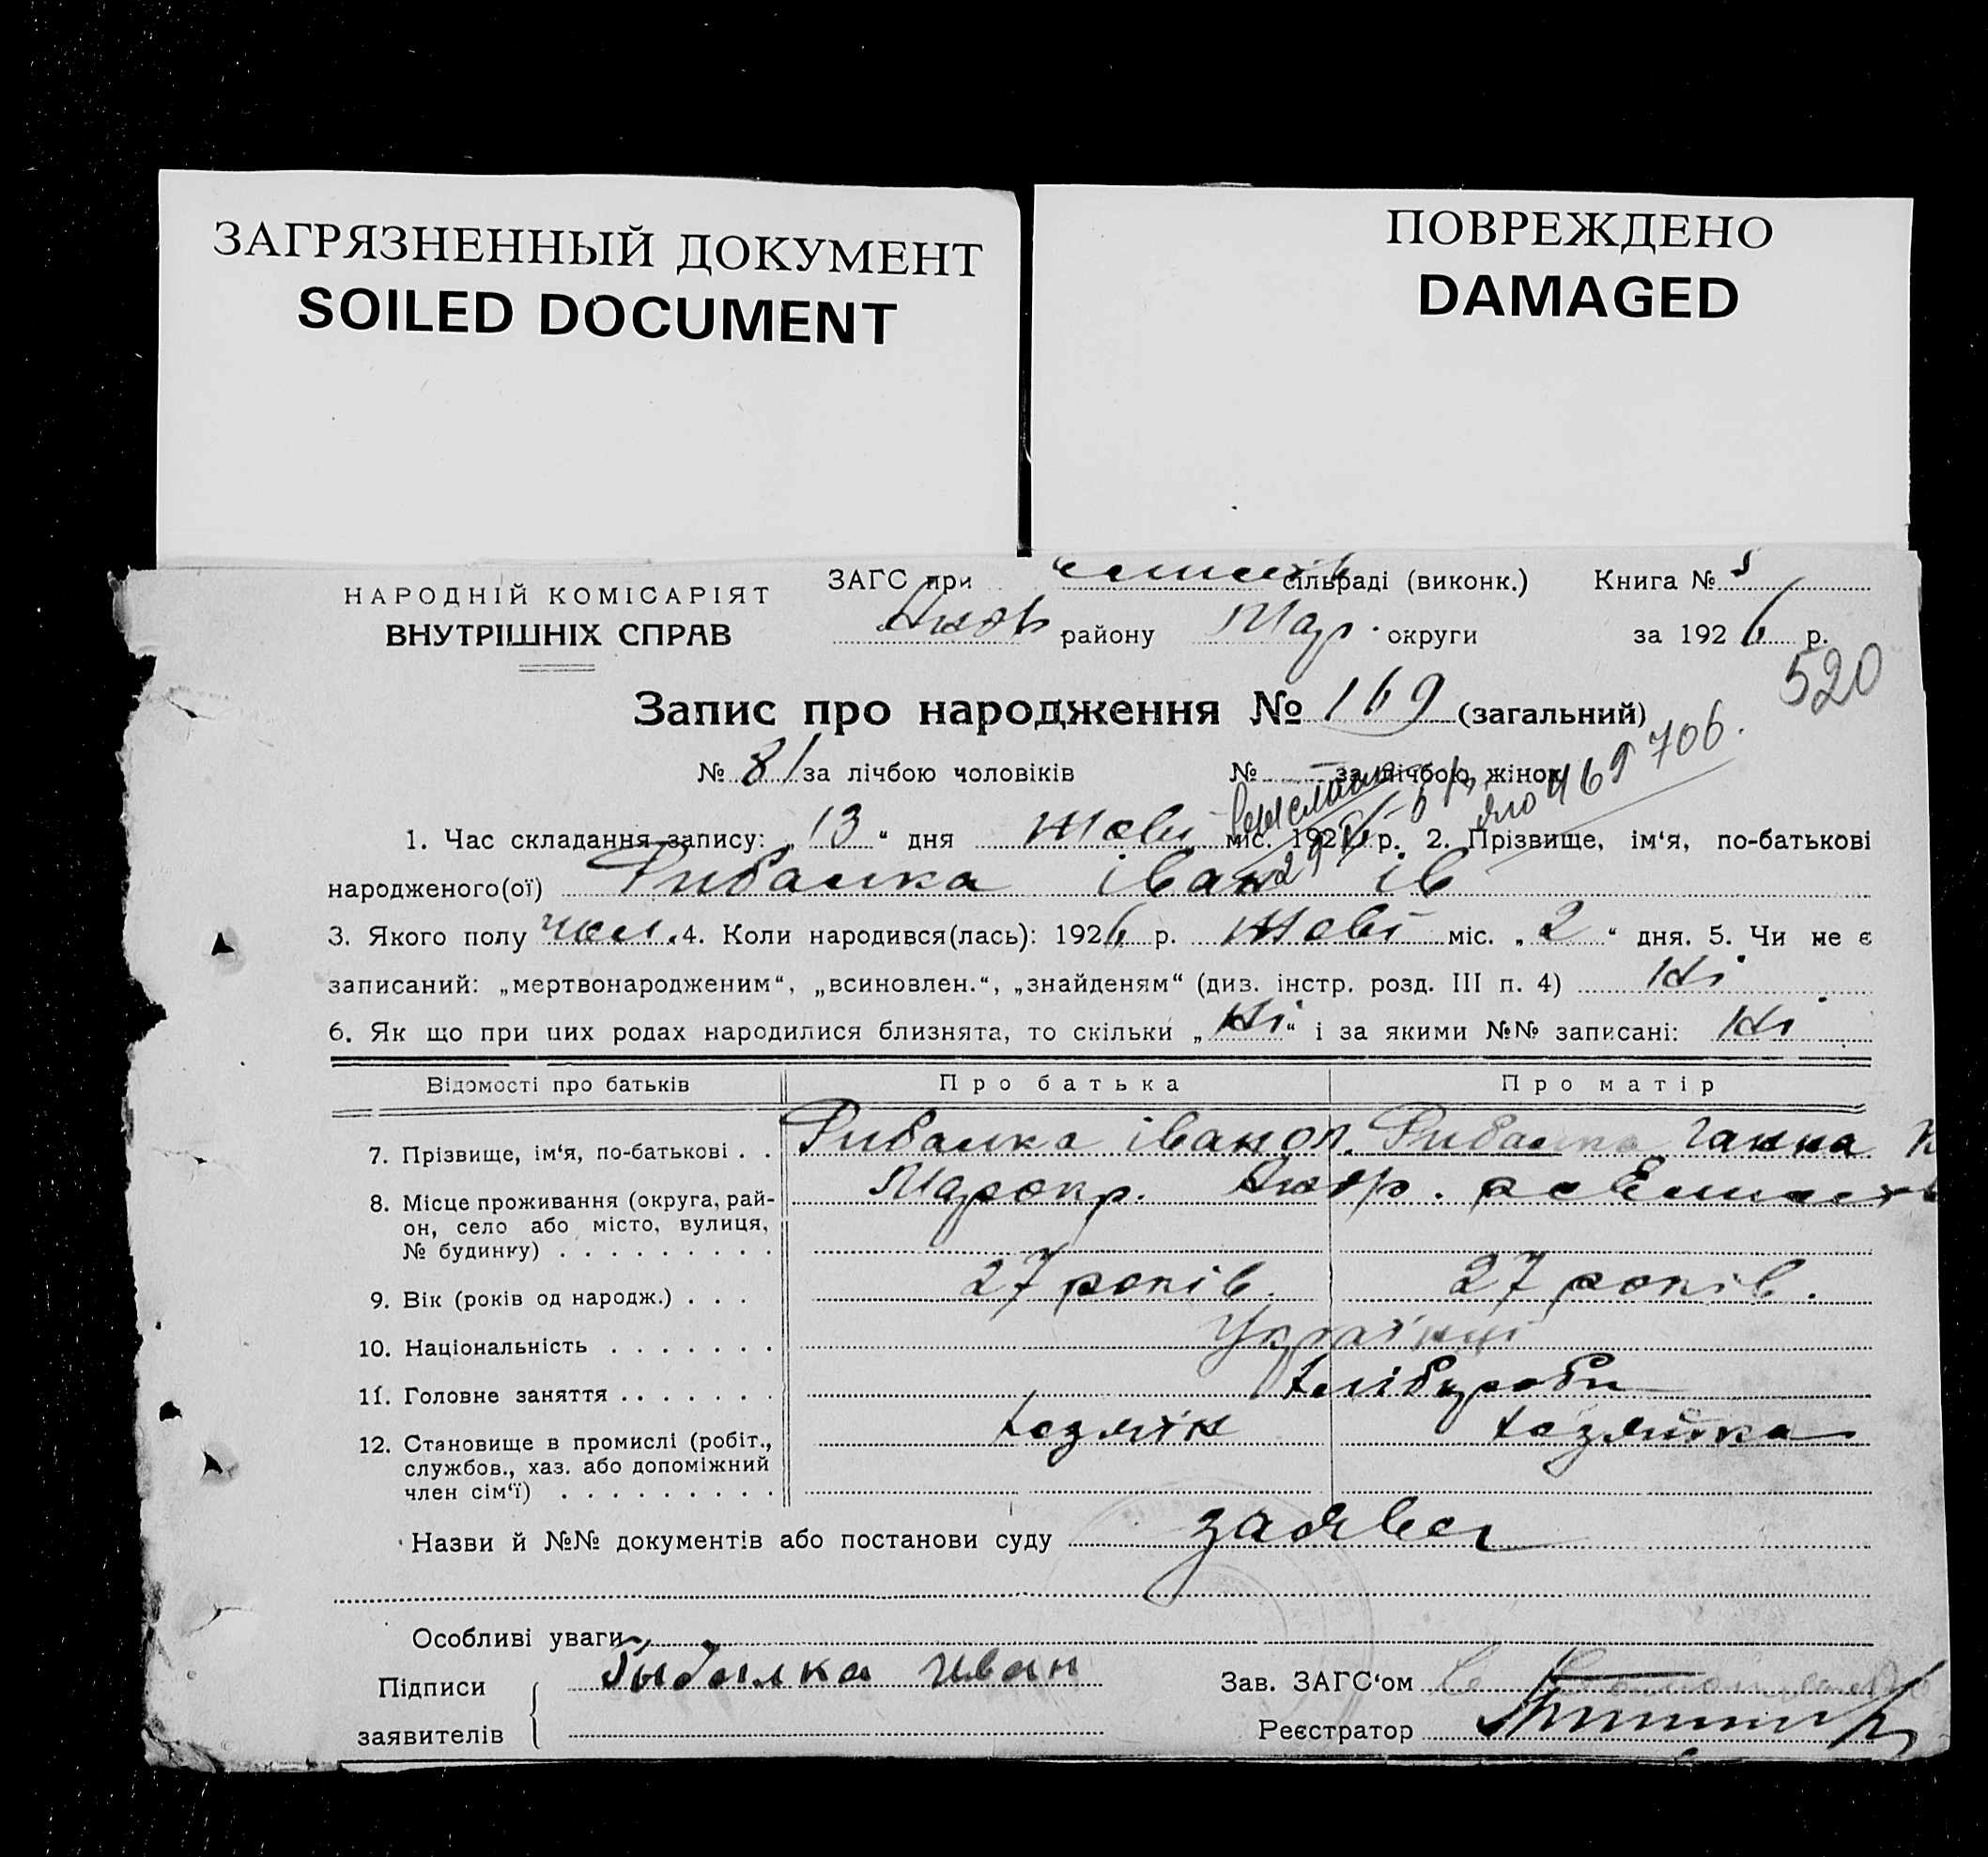 ЗАГРЯЗНЕННЫЙ ДОКУМЕНТ
SOILED DOCUMENT
ПОВРЕЖДЕНО
DAMAGED
НАРОДНІЙ КОМІСАРІЯТ
ВНУТРІШНІХ СПРАВ
ЗАГС при сільраді (виконк.) Книга №
району Мар. округи за 1926 р.
520
Запис про народження № 169 (загальний)
№ 81 за лічбою чоловіків № за лічбою жінок
469706.
1. Час складання запису: „13“ дня Жовт міс. 1926 р. 2. Прізвище, ім‘я, по-батькові
народженого(ої) Рибалка іван ів
3. Якого полу чол. 4. Коли народився(лась): 1926 р. Жовт міс. „2“ дня. 5. Чи не є
записаний: „мертвонародженим“, „всиновлен.“, „знайденям“ (див. інстр. розд. III п. 4) Ні
6. Як що при цих родах народилися близнята, то скільки „Ні“ і за якими №№ записані: Ні
Відомості про батьків Про батька Про матір
7. Прізвище, ім‘я, по-батькові . . Рибалка іван Рибалка Ганна
8. Місце проживання (округа, рай-
он, село або місто, вулиця,
№ будинку) . . . . . . . . . Марокр.
9. Вік (років од народж.) . . . 27 років. 27 років.
10. Національність . . . . . . . Українці
11. Головне заняття . . . . . . . хлібороби
12. Становище в промислі (робіт., хазяїн хазяйка
службов., хаз. або допоміжний
член сім‘ї) . . . . . . . . .
Назви й №№ документів або постанови суду заява
Особливі уваги
Підписи Рыбалка Иван Зав. ЗАГС‘ом
заявителів Реєстратор